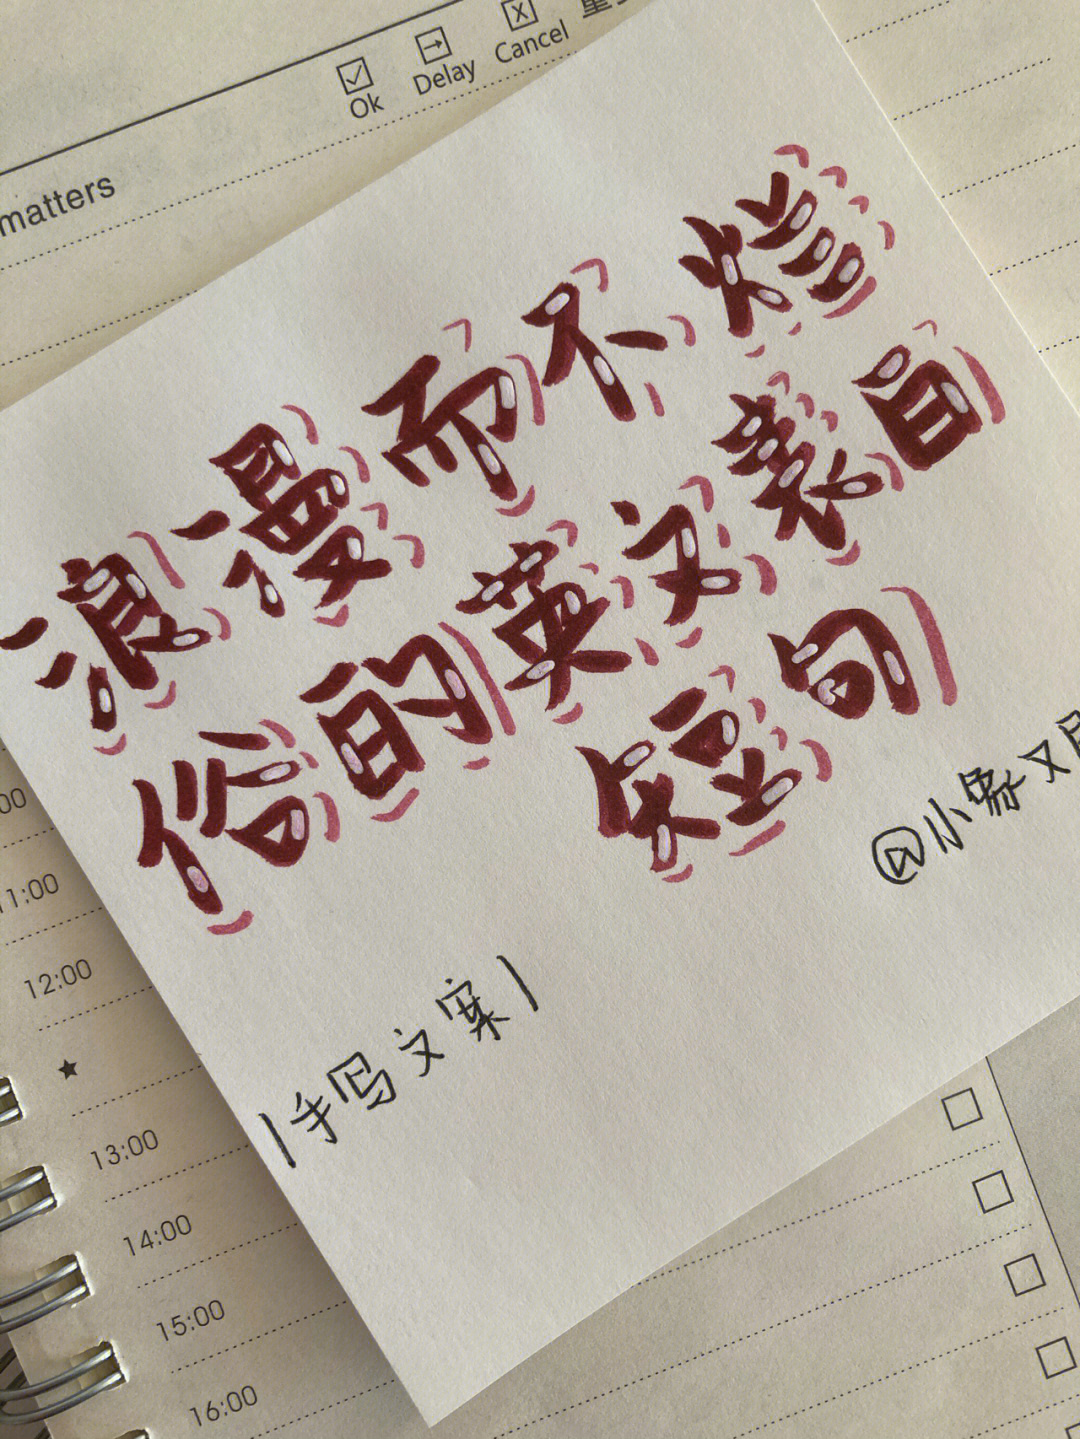 Ok Delay Cancel
matters
浪漫而不烂
俗的英文表白
短句
@小象文
|手写文案|
11:00
12:00
13:00
14:00
15:00
16:00